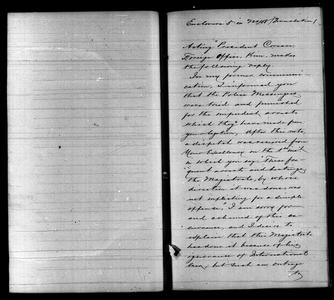 Enclosure 5 in No 98 (Translation)
Acting President Corean
Foreign Office, Kim, makes
the following reply.
In my former communi-
cation, I informed you
that the Police Messengers
were tried and punished
for the imprudent arrests
which they have made from
your legation. After this note,
a despatch was received from
Your Excellency on the 1st inst
in which you say: These fre-
quent arrests and beatings
the Magistrate, by whose
direction it was done, was
not suffering for a simple
offence. I am very sorry
and ashamed of this oc-
currence, and I desire to
explain that the Magistrate
has done it because of his
ignorance of International
law, but such an outrage